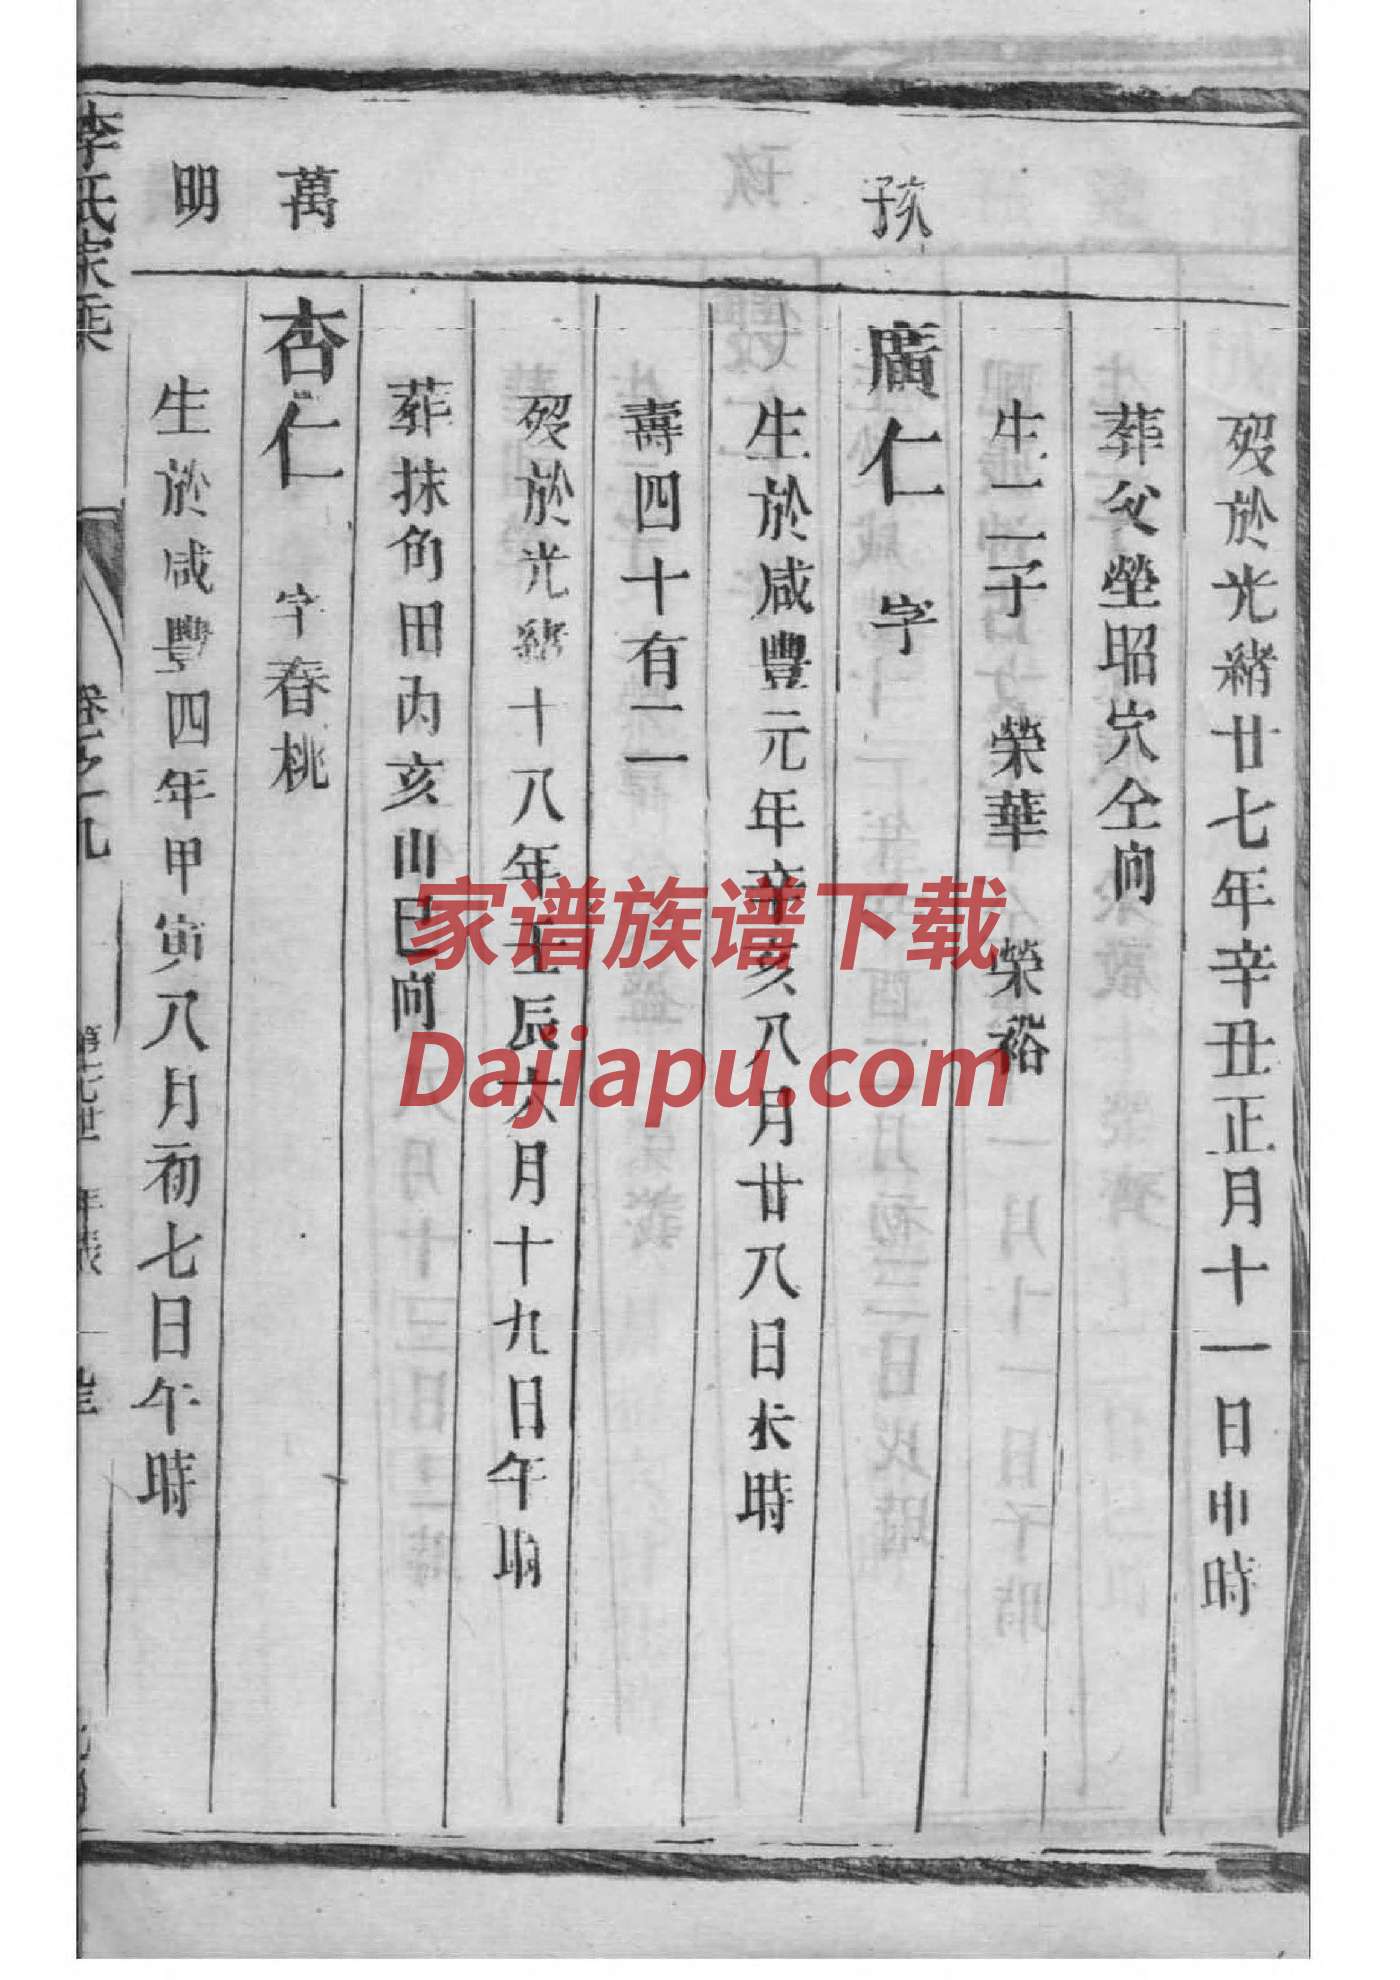 歿於光緒廿七年辛丑正月十一日申時
葬父塋昭穴仝向
生二子 榮華 榮裕
孩
廣仁 字
生於咸豐元年辛亥八月廿八日未時
壽四十有二
歿於光緒十八年壬辰六月十九日午時
葬抹角田內亥山巳向
萬
杏仁 字春桃
明
生於咸豐四年甲寅八月初七日午時
李氏宗乘
卷之九
第十七世 年表
家谱族谱下载
Dajiapu.com